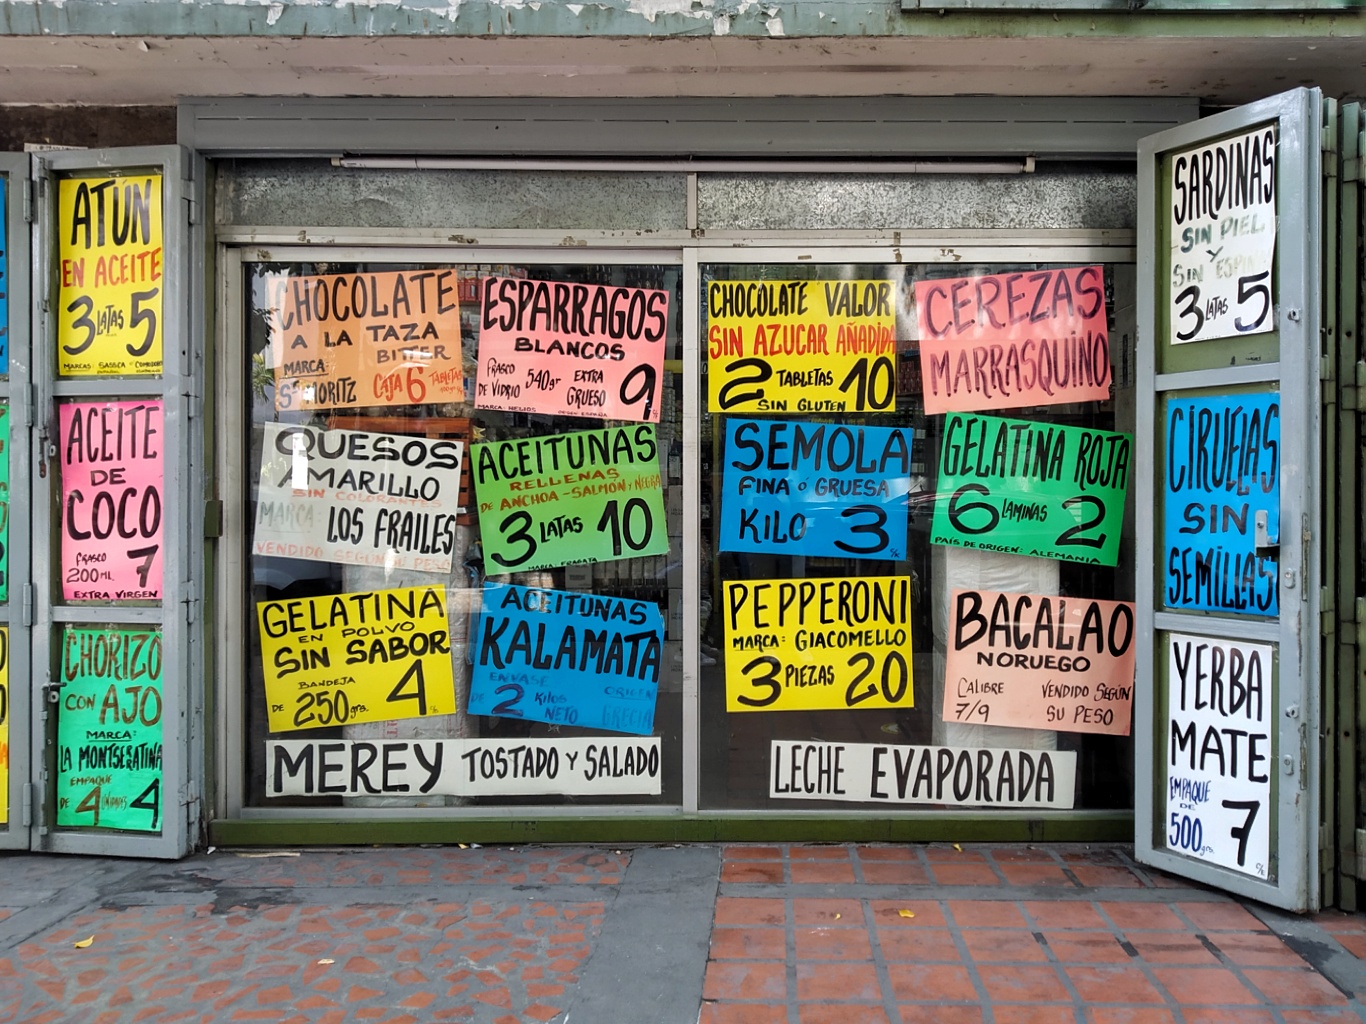 ATÚN
EN ACEITE
3 LATAS 5
ACEITE
DE
COCO
FRASCO
200 ML 7
EXTRA VIRGEN
CHORIZO
CON AJO
MARCA:
LA MONTSERRATINA
EMPAQUE
DE 4 UNIDADES 4
CHOCOLATE
A LA TAZA
MARCA: BITTER
ST MORITZ CAJA 6 TABLETAS
ESPARRAGOS
BLANCOS
FRASCO
DE VIDRIO 540gr EXTRA
GRUESO 9
QUESOS
AMARILLO
SIN COLORANTES
MARCA LOS FRAILES
VENDIDO SEGUN PESO
ACEITUNAS
RELLENAS
DE ANCHOA-SALMÓN Y NEGRA
3 LATAS 10
MARCA: FRAGATA
GELATINA
EN POLVO
SIN SABOR
BANDEJA
DE 250grs. 4
ACEITUNAS
KALAMATA
ENVASE
DE 2 KILOS
NETO
ORIGEN
GRECIA
MEREY TOSTADO Y SALADO
CHOCOLATE VALOR
SIN AZUCAR AÑADIDA
2 TABLETAS 10
SIN GLUTEN
CEREZAS
MARRASQUINO
SEMOLA
FINA O GRUESA
KILO 3
GELATINA ROJA
6 LAMINAS 2
PAÍS DE ORIGEN: ALEMANIA
PEPPERONI
MARCA: GIACOMELLO
3 PIEZAS 20
BACALAO
NORUEGO
CALIBRE
7/9
VENDIDO SEGÚN
SU PESO
LECHE EVAPORADA
SARDINAS
SIN PIEL
Y
SIN ESPINA
3 LATAS 5
CIRUELAS
SIN
SEMILLAS
YERBA
MATE
EMPAQUE
DE
500grs. 7